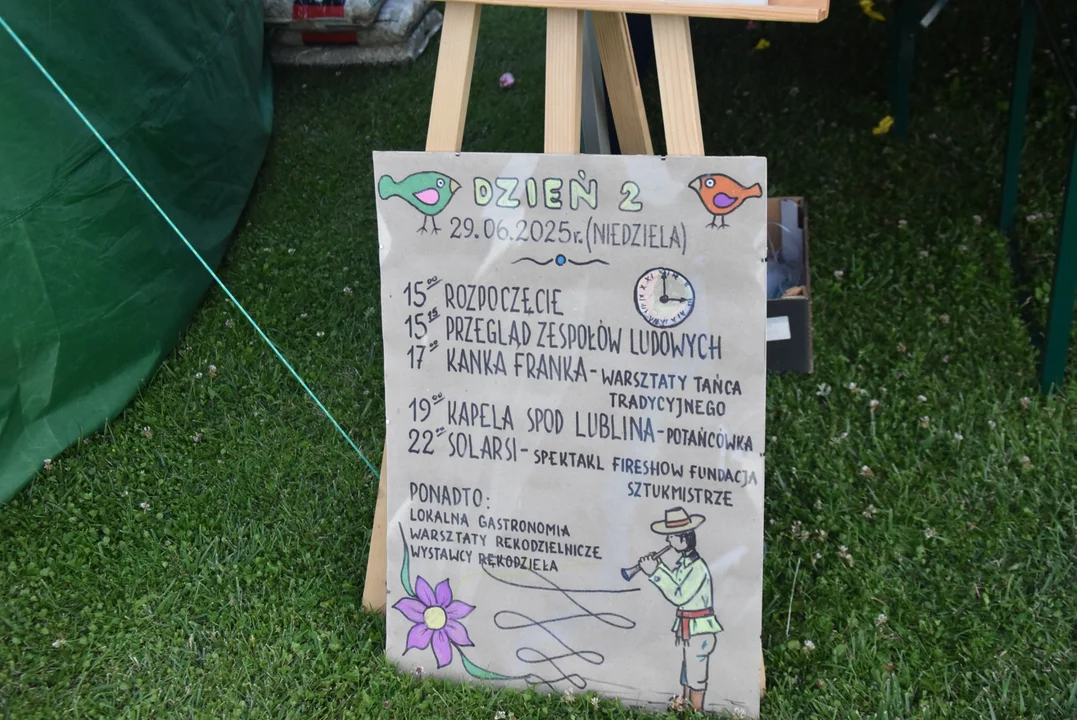 DZIEŃ 2
29.06.2025r. (NIEDZIELA)
15⁰⁰ ROZPOCZĘCIE
15¹⁵ PRZEGLĄD ZESPOŁÓW LUDOWYCH
17⁰⁰ KANKA FRANKA - WARSZTATY TAŃCA
TRADYCYJNEGO
19⁰⁰ KAPELA SPOD LUBLINA - POTAŃCÓWKA
22⁰⁰ SOLARSI - SPEKTAKL FIRESHOW FUNDACJA
SZTUKMISTRZE
PONADTO:
LOKALNA GASTRONOMIA
WARSZTATY REKODZIELNICZE
WYSTAWCY RĘKODZIEŁA